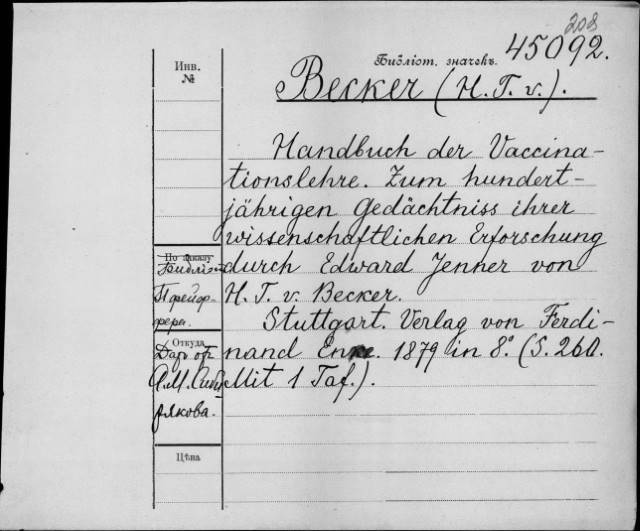 208
Библіот. значекъ. 45092.
Инв.
№
Becker (H. T. v.).
Handbuch der Vaccina-
tionslehre. Zum hundert-
jährigen Gedächtniss ihrer
wissenschaftlichen Erforschung
По заказу
durch Edward Jenner von
H. T. v. Becker.
Stuttgart. Verlag von Ferdi-
Откуда
nand Enke. 1879 in 8.° (S. 260.
Mit 1 Taf.).
Даръ от
А. М. Сиби
рякова.
Цѣна